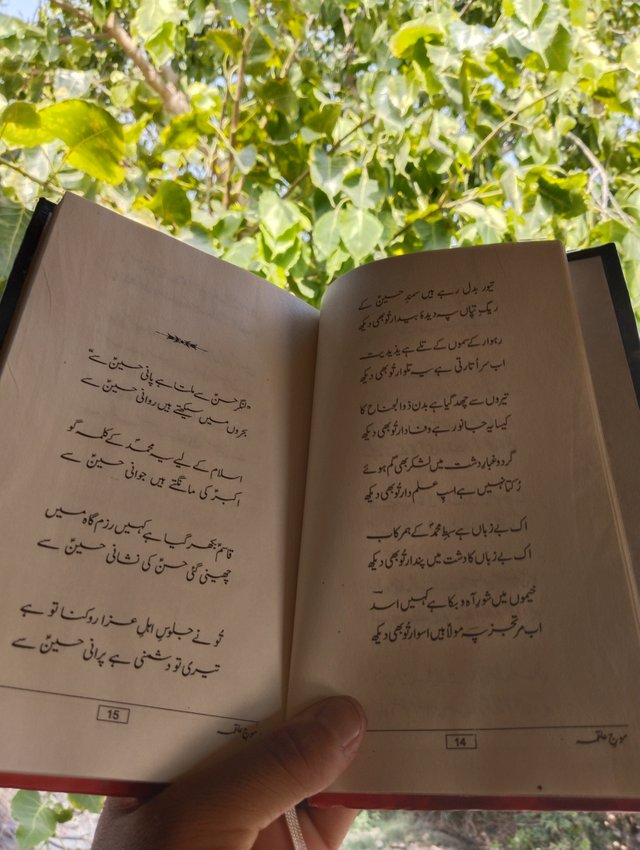 تیور بدل رہے ہیں سمندِ حسینؑ کے
ریگِ تپاں پہ دیدۂ بیدار تُو بھی دیکھ
رہوار کے سُموں کے تلے ہے یذیدیت
اب سر اُتارتی ہے یہ تلوار تُو بھی دیکھ
تیروں سے چھد گیا ہے بدن ذوالجناح کا
کیسا یہ جانور ہے وفادار تُو بھی دیکھ
گرد و غبارِ دشت میں لشکر بھی گم ہوئے
رُکتا نہیں ہے اسپِ علم دار تُو بھی دیکھ
اک بے زباں ہے سبطِ محمدؐ کے ہمرکاب
اک بے زباں کا دشت میں پندار تُو بھی دیکھ
خیموں میں شورِ آہ و بکا ہے کہیں اسدؔ
اب مرتجز پہ مولاؑ ہیں اسوار تُو بھی دیکھ
14
موجِ علقمہ
لنگرِ حسنؑ سے ملتا ہے پانی حسینؑ سے
بحروں میں سیکھتے ہیں روانی حسینؑ سے
اسلام کے لیے یہ محمدؐ کے کلمہ گو
اکبرؑ کی مانگتے ہیں جوانی حسینؑ سے
قاسمؑ بکھر گیا ہے کہیں رزم گاہ میں
چھینی گئی حسنؑ کی نشانی حسینؑ سے
تُو نے جلوسِ اہلِ عزا روکنا تو ہے
تیری تو دشمنی ہے پرانی حسینؑ سے
15
موجِ علقمہ